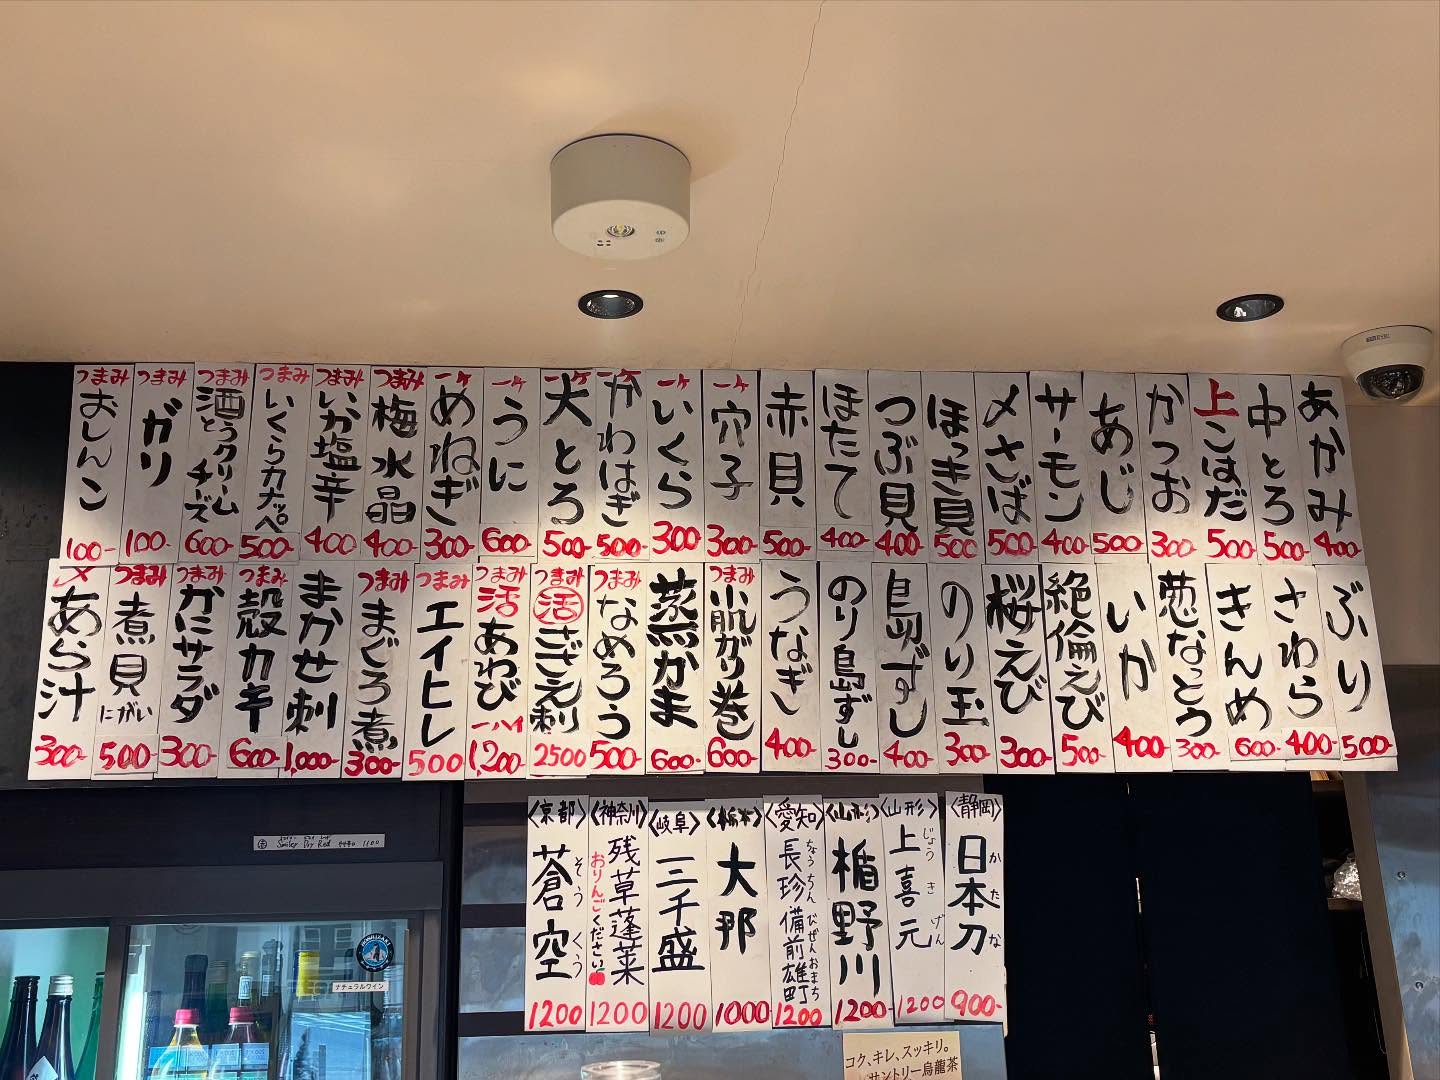 あかみ 400-
中とろ 500-
上こはだ 500-
かつお 300
あじ 500-
サーモン 400-
〆さば 500
ほっき貝 500
つぶ貝 400-
ほたて 400-
赤貝 500-
一ヶ 穴子 300-
一ヶ いくら 300
一ヶ かわはぎ 500-
一ヶ 大とろ 500-
一ヶ うに 600-
一ヶ めねぎ 300-
つまみ 梅水晶 400-
つまみ いか塩辛 400
つまみ いくらカナッペ 500-
つまみ 酒とうクリームチーズ 600-
つまみ ガリ 100-
つまみ おしんこ 100-
ぶり 500-
さわら 400-
きんめ 600-
葱なっとう 300-
いか 400-
絶倫えび 500-
桜えび 300-
のり玉 300-
島ずし 400-
のり島ずし 300-
うなぎ 400-
つまみ 小肌がり巻 600-
蒸かま 600-
つまみ なめろう 500-
つまみ 活 さざえ刺 2500
つまみ 活あわび 一ハイ 1,200-
つまみ エイヒレ 500
つまみ まぐろ煮 300-
まかせ刺 1,000-
つまみ 殻カキ 600-
つまみ かにサラダ 300-
つまみ 煮貝 にがい 500-
〆 あら汁 300-
〈静岡〉 日本刀 かたな 900-
〈山形〉 上喜元 じょうきげん 1200
〈山形〉 楯野川 1200-
〈愛知〉 長珍 備前雄町 ちょうちん びぜんおまち 1200
〈栃木〉 大那 1000
〈岐阜〉 三千盛 1200
〈神奈川〉 残草蓬莱 おりんごください 1200
〈京都〉 蒼空 そうくう 1200
Smiley Dry Red 1100
HOSHIZAKI
ナチュラルワイン
コク、キレ、スッキリ。
サントリー烏龍茶